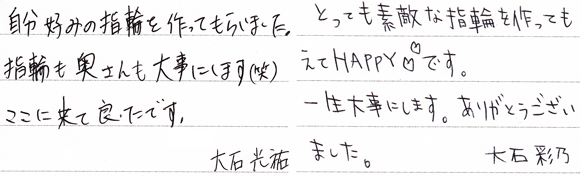 自分好みの指輪を作ってもらいました。
指輪も奥さんも大事にします(笑)
ここに来て良ったです。
大石光祐
とっても素敵な指輪を作っても
えてHAPPY♡です。
一生大事にします。ありがとうござい
ました。 大石彩乃